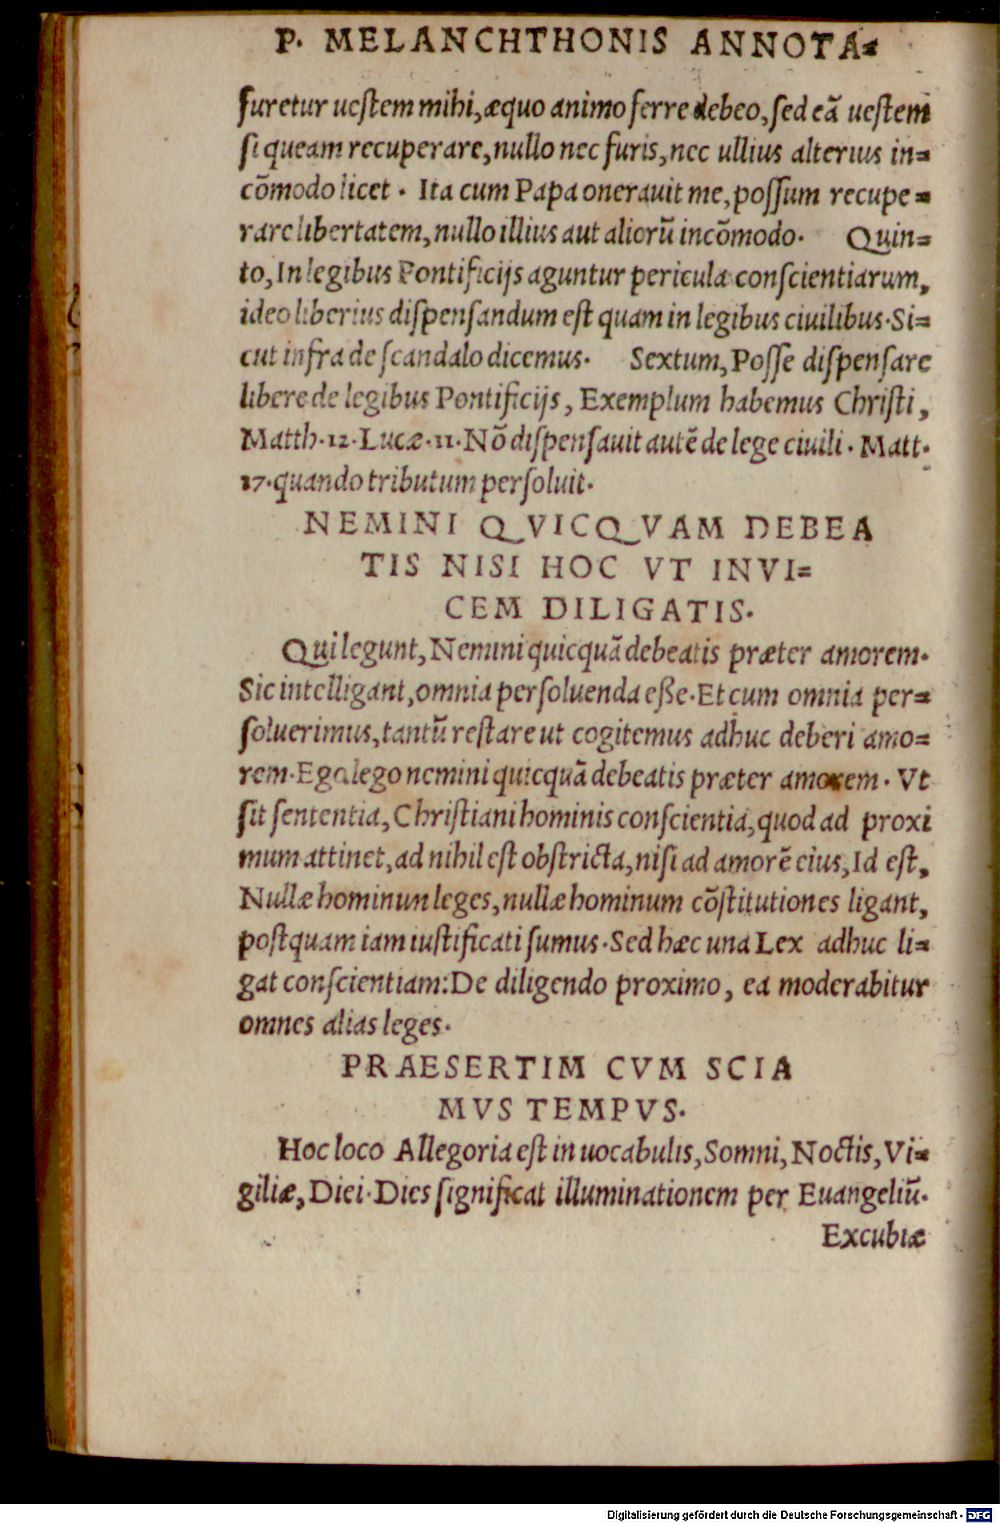 P. MELANCHTHONIS ANNOTA⸗
furetur ueſtem mihi, æquo animo ferre debeo, ſed eã ueſtem
ſi queam recuperare, nullo nec furis, nec ullius alterius in⸗
cõmodo licet. Ita cum Papa onerauit me, poſſum recupe⸗
rare libertatem, nullo illius aut aliorũ incõmodo. Quin⸗
to, In legibus Pontificijs aguntur pericula conſcientiarum,
ideo liberius diſpenſandum eſt quam in legibus ciuilibus. Si⸗
cut infra de ſcandalo dicemus. Sextum, Poſſe diſpenſare
libere de legibus Pontificijs, Exemplum habemus Chriſti,
Matth. 12. Lucæ. 11. Nõ diſpenſauit autẽ de lege ciuili. Matt.
17. quando tributum perſoluit.
NEMINI QVICQVAM DEBEA
TIS NISI HOC VT INVI⸗
CEM DILIGATIS.
Qui legunt, Nemini quicquã debeatis præter amorem.
Sic intelligant, omnia perſoluenda eße. Et cum omnia per⸗
ſoluerimus, tantũ reſtare ut cogitemus adhuc deberi amo⸗
rem. Ego lego nemini quicquã debeatis præter amorem. Vt
ſit ſententia, Chriſtiani hominis conſcientia, quod ad proxi
mum attinet, ad nihil eſt obſtricta, niſi ad amorẽ eius, Id eſt,
Nullæ hominun leges, nullæ hominum cõſtitutiones ligant,
poſtquam iam iuſtificati ſumus. Sed hæc una Lex adhuc li⸗
gat conſcientiam: De diligendo proximo, ea moderabitur
omnes alias leges.
PRAESERTIM CVM SCIA
MVS TEMPVS.
Hoc loco Allegoria eſt in uocabulis, Somni, Noctis, Vi⸗
giliæ, Diei. Dies ſignificat illuminationem per Euangeliũ.
Excubiæ
Digitalisierung gefördert durch die Deutsche Forschungsgemeinschaft - DFG